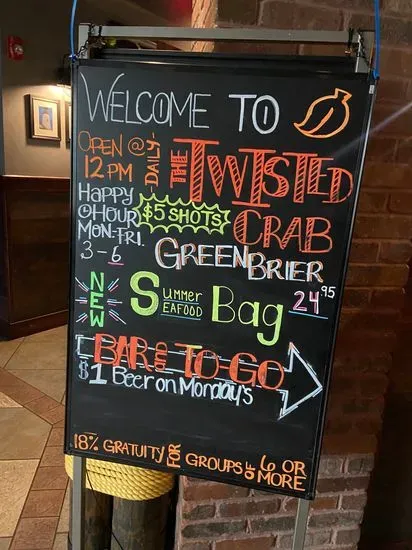 WELCOME TO
OPEN @ 12 PM -DAILY-
THE TWISTED CRAB
GREENBRIER
HAPPY HOUR MON.-FRI. 3-6
$5 SHOTS
NEW
SUMMER SEAFOOD Bag 24.95
BAR AND TO-GO
$1 Beer on Monday's
18% GRATUITY FOR GROUPS OF 6 OR MORE